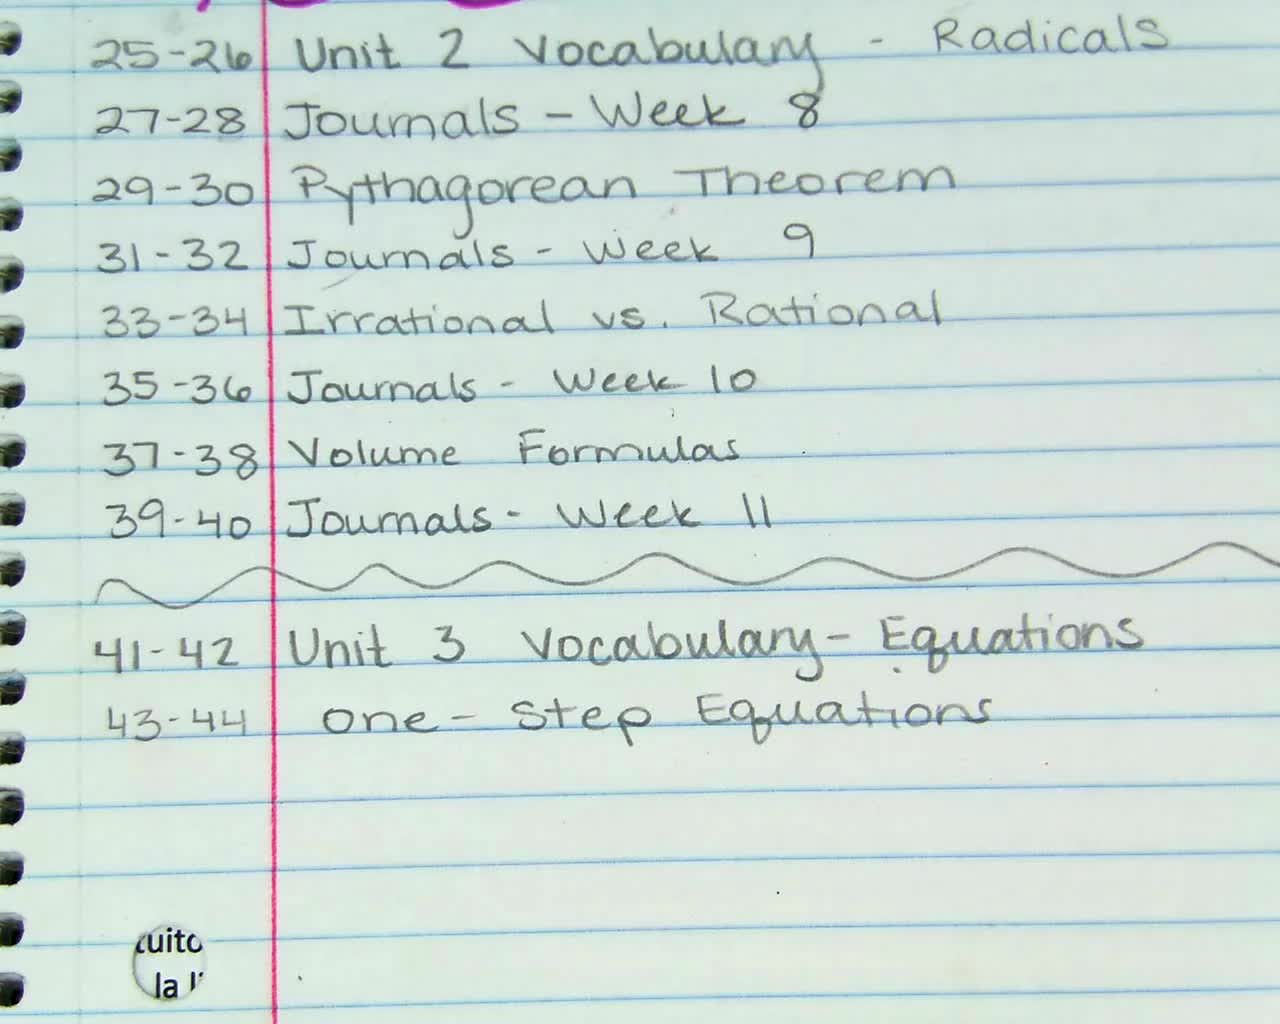 25-26 Unit 2 Vocabulary - Radicals
27-28 Journals - Week 8
29-30 Pythagorean Theorem
31-32 Journals - Week 9
33-34 Irrational vs. Rational
35-36 Journals - Week 10
37-38 Volume Formulas
39-40 Journals - Week 11
41-42 Unit 3 Vocabulary - Equations
43-44 One-Step Equations
la